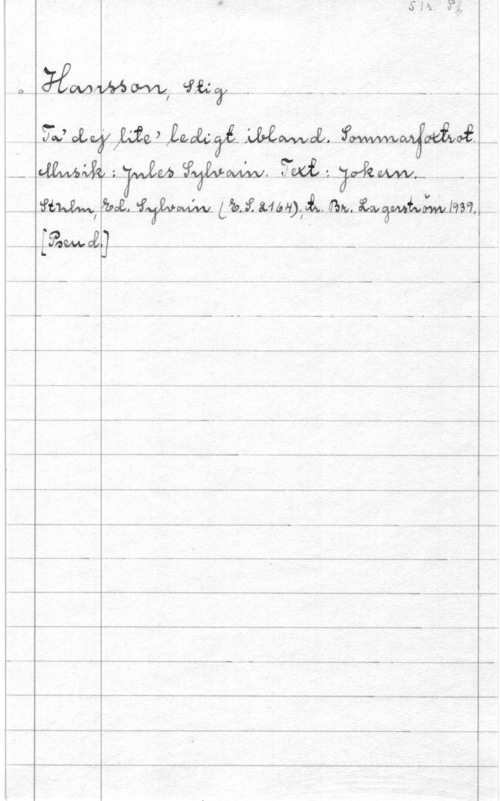 Hansson, Stig
Ta' dej lite' ledigt ibland. Sommarfoxtrot.
Musik: Jules Sylvain. Text: Jokern.
Sthlm, Ed. Sylvain (E.S. 2164), tr. Br. Lagerström 1939.
[Pseud.]